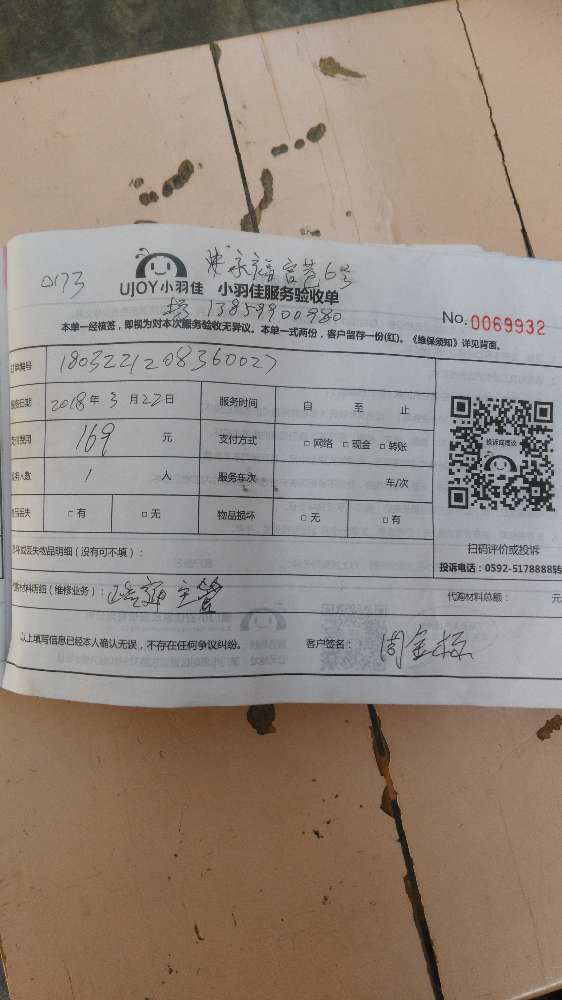 0173
永福宫巷6号
UJOY小羽佳 小羽佳服务验收单
13859900980
No.0069932
本单一经核签，即视为对本次服务验收无异议。本单一式两份，客户留存一份(红)。《维保须知》详见背面。
订单编号 1803221208360027
日期 2018年3月22日 服务时间 自 至 止
支付费用 169 元 支付方式 □网络 □现金 □转账
人数 1 人 服务车次 车/次
丢失 □有 □无 物品损坏 □无 □有
投诉或建议
扫码评价或投诉
投诉电话：0592-5178888转
丢失物品明细（没有可不填）：
材料明细（维修业务）： 主管
代购材料总额： 元
以上填写信息已经本人确认无误，不存在任何争议纠纷。 客户签名： 周金